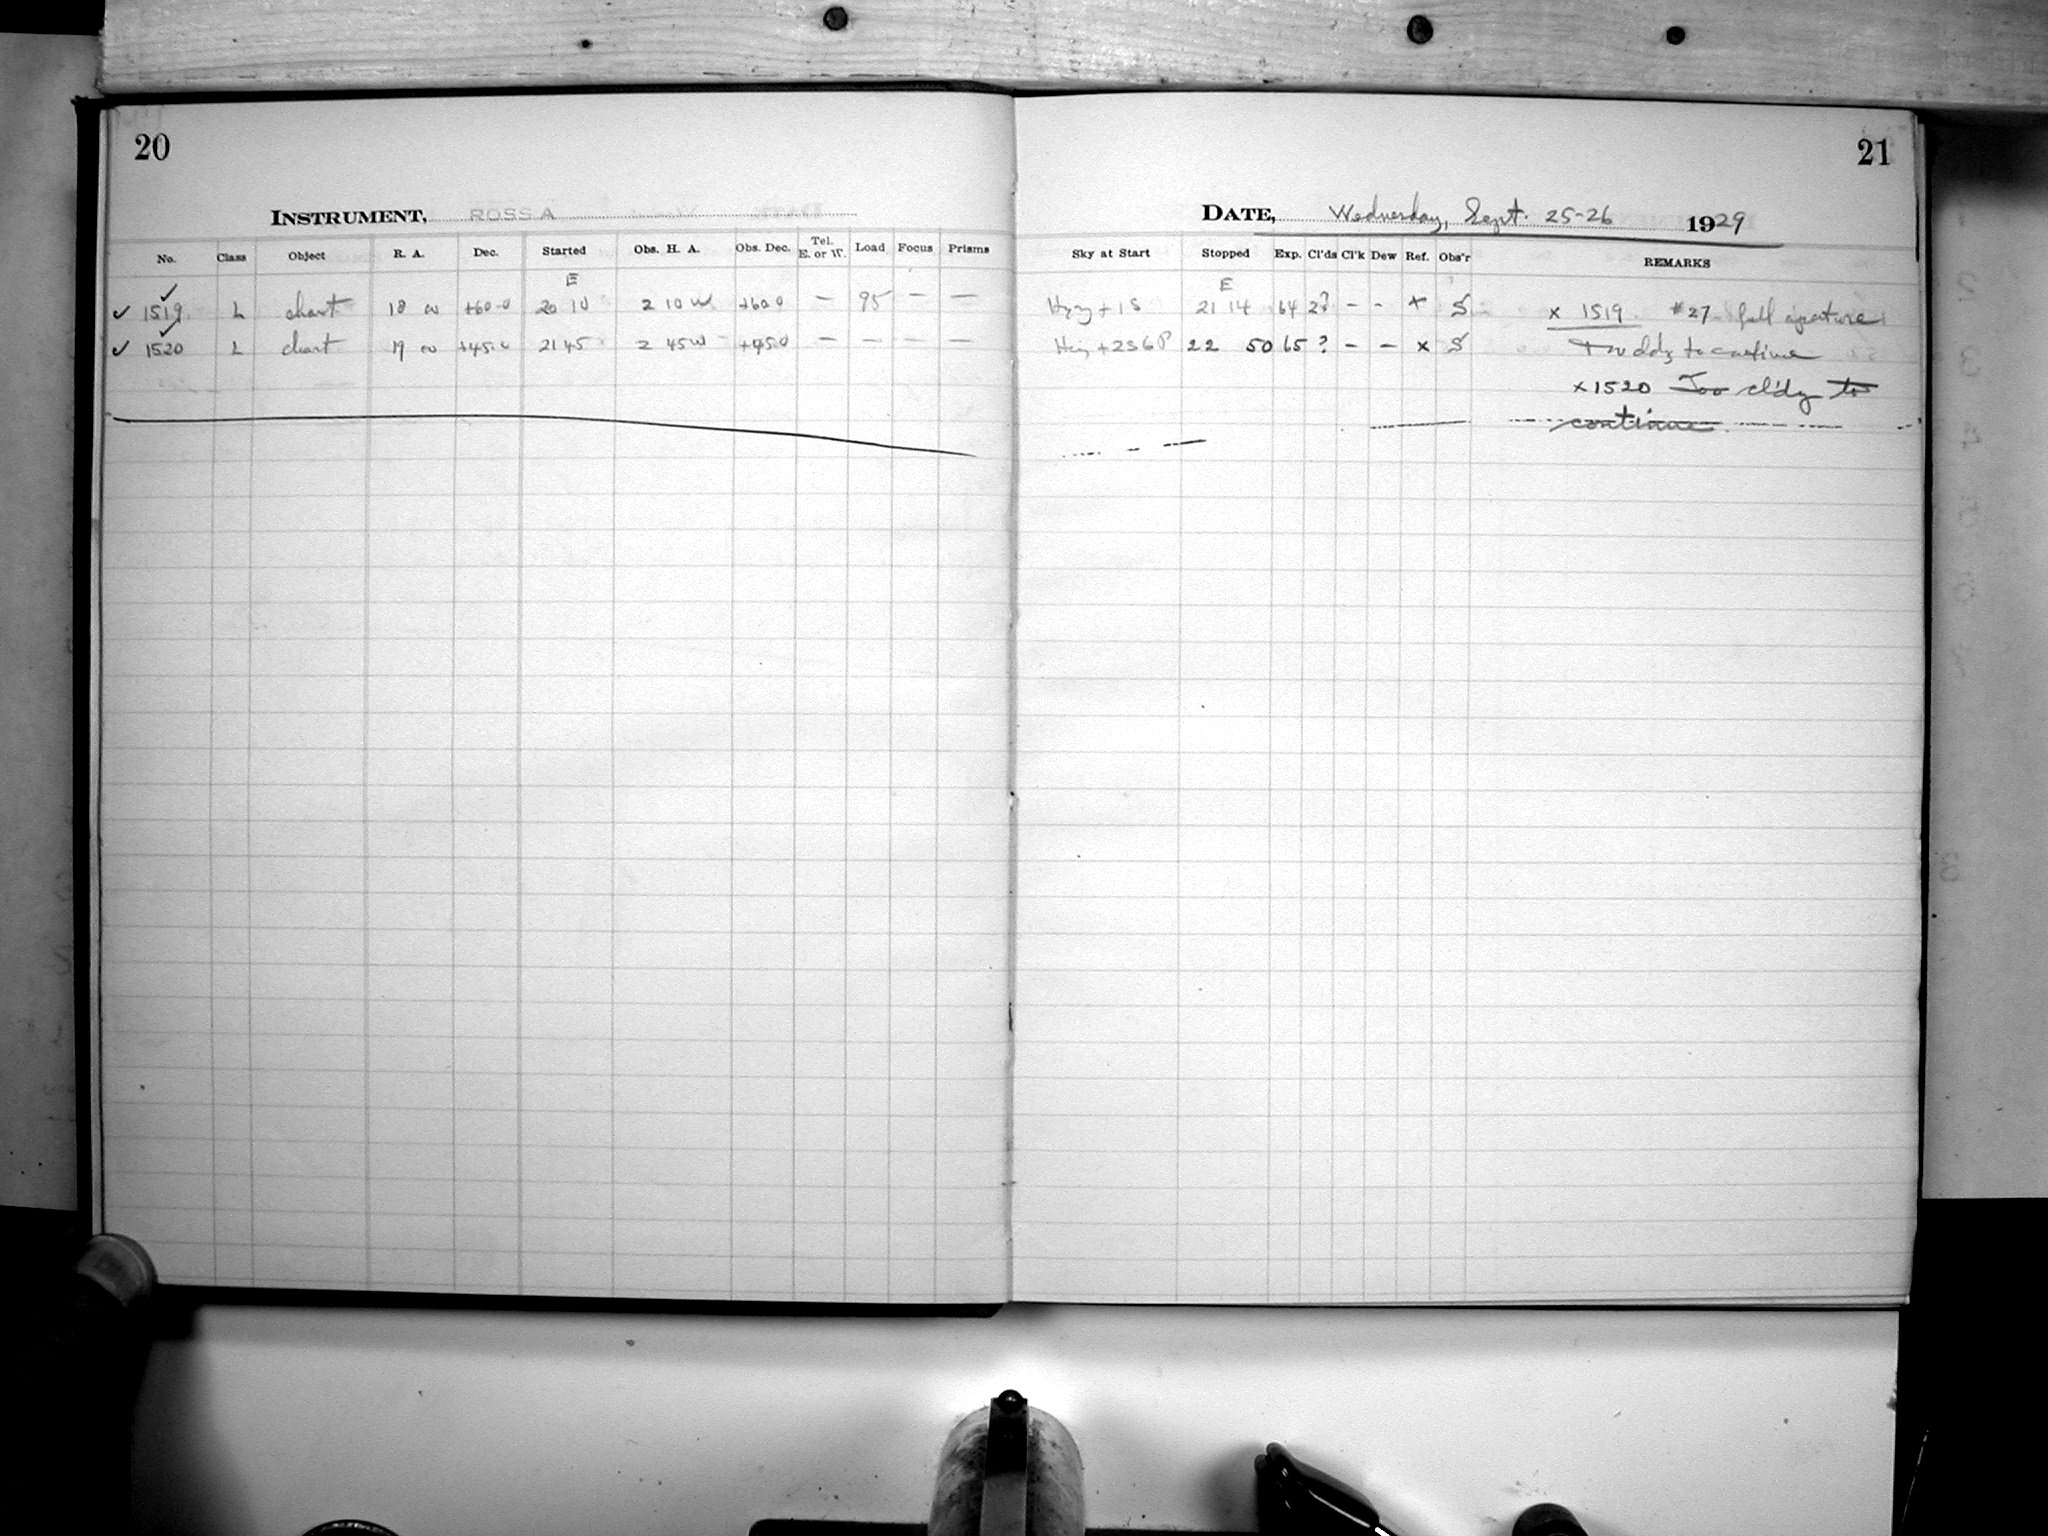 20
INSTRUMENT, ROSS A
No. Class Object R. A. Dec. Started Obs. H. A. Obs. Dec. Tel. E. or W. Load Focus Prisms
E
✓ 1519 L chart 18 00 +60.0 20 10 2 10 W +60 0 — 95 — —
✓ 1520 L chart 19 00 +45.0 21 45 2 45 W +45.0 — — — —
21
DATE, Wednesday, Sept. 25-26 1929
Sky at Start Stopped Exp. Cl'ds Cl'k Dew Ref. Obs'r REMARKS
E
+ 1 S 21 14 64 2? - - x S x 1519 #27 full aperature
22 50 65 ? - - x S to continue
x 1520 Too cl'dy to
continue